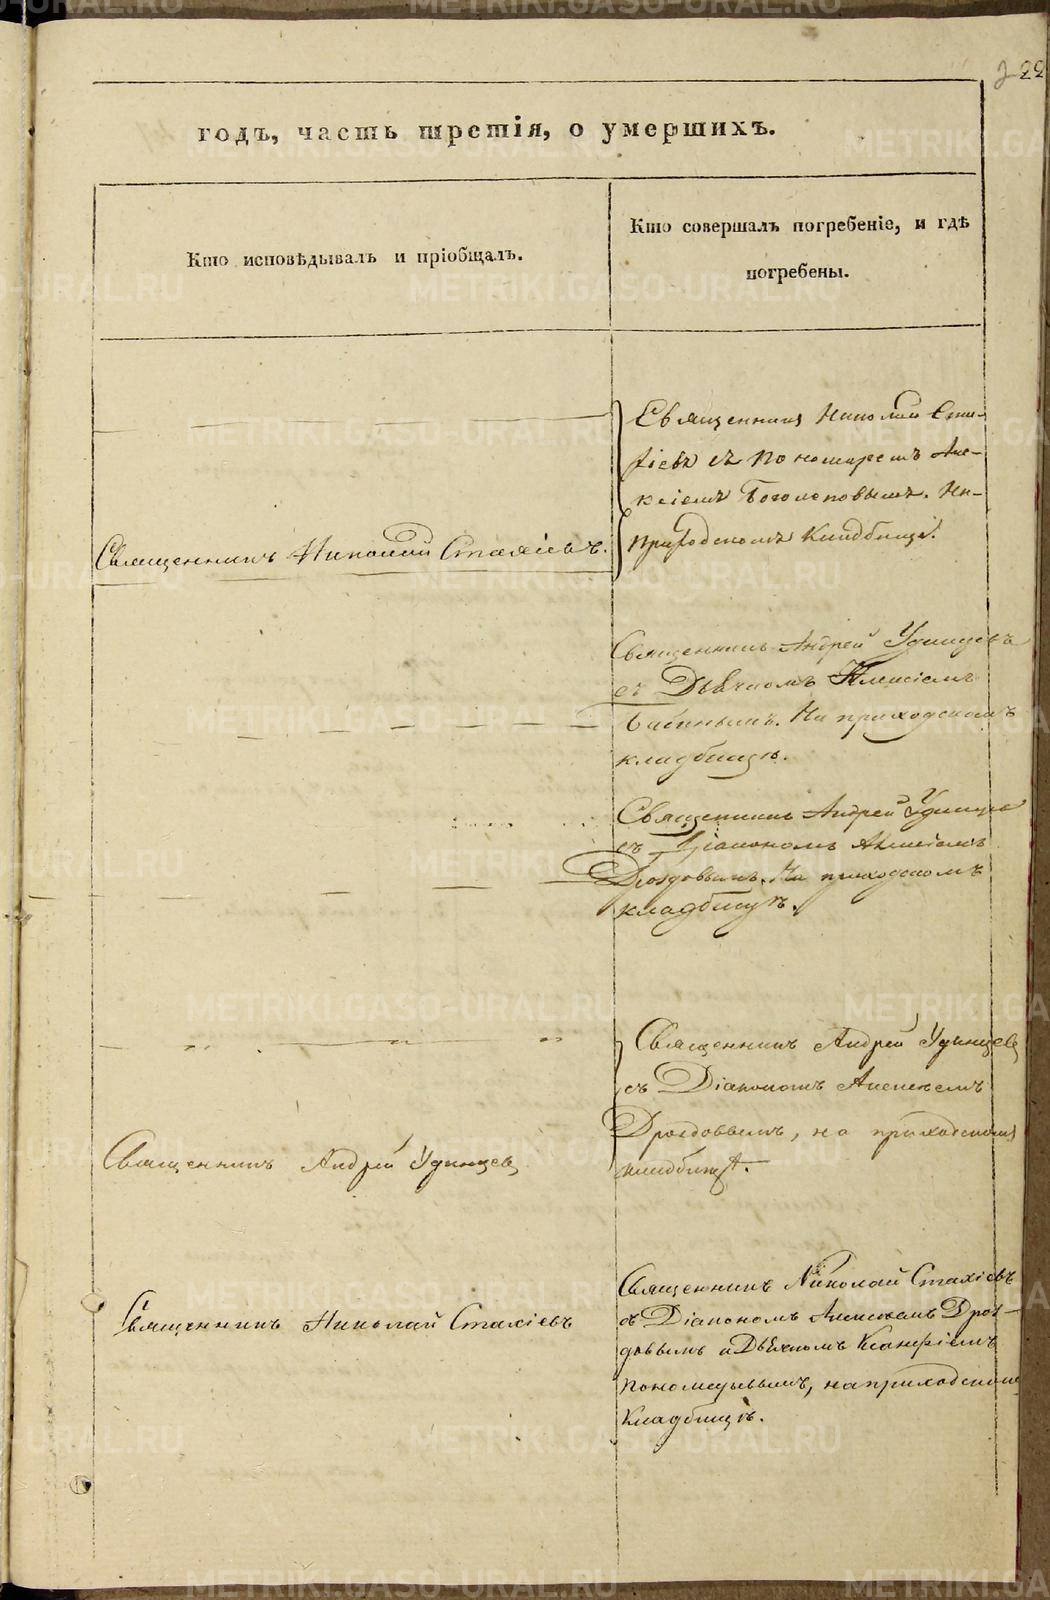 222
годъ, часть третія, о умершихъ.
Кто исповѣдывалъ и пріобщалъ.
Кто совершалъ погребеніе, и гдѣ
погребены.
Священникъ Николай Ста-
хіевъ съ Пономаремъ Але-
ксіемъ Боголеповымъ. На-
приходскомъ кладбище.
Священникъ Николай Стахіевъ.
Священникъ Андрей Удинцевъ
съ Дьячкомъ Алексіемъ
Бабинымъ. На приходскомъ
кладбищѣ.
Священникъ Андрей Удинцевъ
съ Діакономъ Алексіемъ
Дроздовымъ. На приходскомъ
кладбищѣ.
Священникъ Андрей Удинцевъ
съ Діакономъ Алексеемъ
Дроздовымъ, на приходскомъ
кладбищѣ.
Священникъ Андрей Удинцевъ
Священникъ Николай Стахіевъ
съ Діакономъ Алексеемъ Дроз-
довымъ и Дьячкомъ
Пономаревымъ, на приходскомъ
Кладбищѣ.
Священникъ Николай Стахіевъ
METRIKI.GASO-URAL.RU